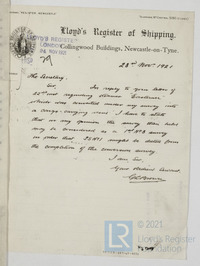 Lloyd's Register of Shipping.
Collingwood Buildings, Newcastle-on-Tyne.
LLOYD'S REGISTER
LONDON
24 NOV 1921
23rd Novr. 1921
The Secretary,
Sir,
In reply to your letter of
22nd inst regarding steamer
which was converted under my survey into
a cargo-carrying vessel I have to state
that in my opinion the survey then held
may be considered as a 1st No 3 survey
in order that SSNo1 might be dated from
the completion of the conversion survey.
I am Sir,
Your obedient Servant,
© 2021
Lloyd's Register
Foundation
LR